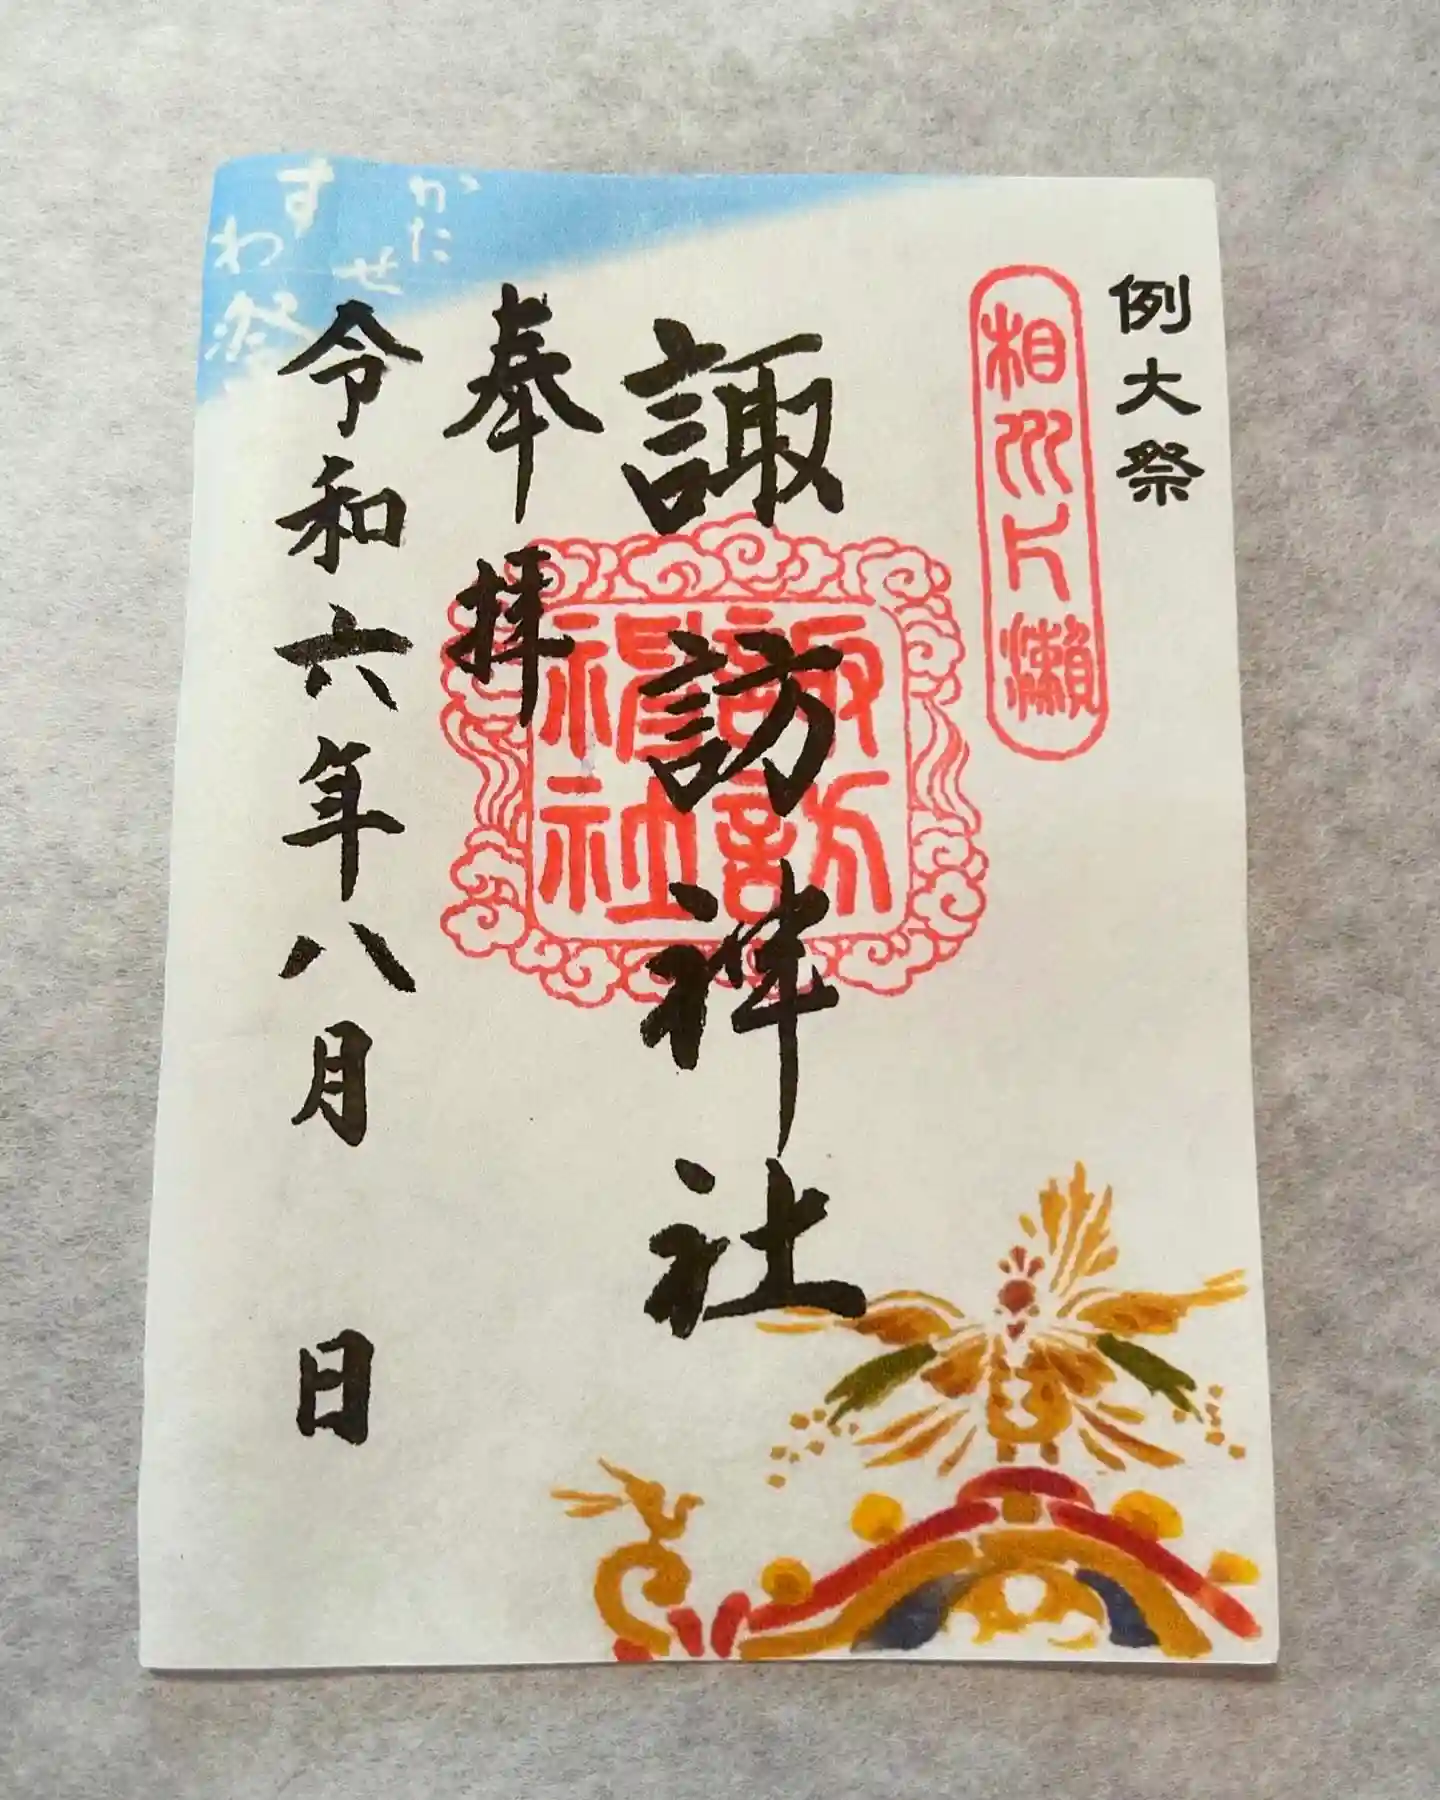 例大祭
相州片瀬
諏訪神社
諏訪
神社
奉拝
令和六年八月 日
かたせ
すわ祭